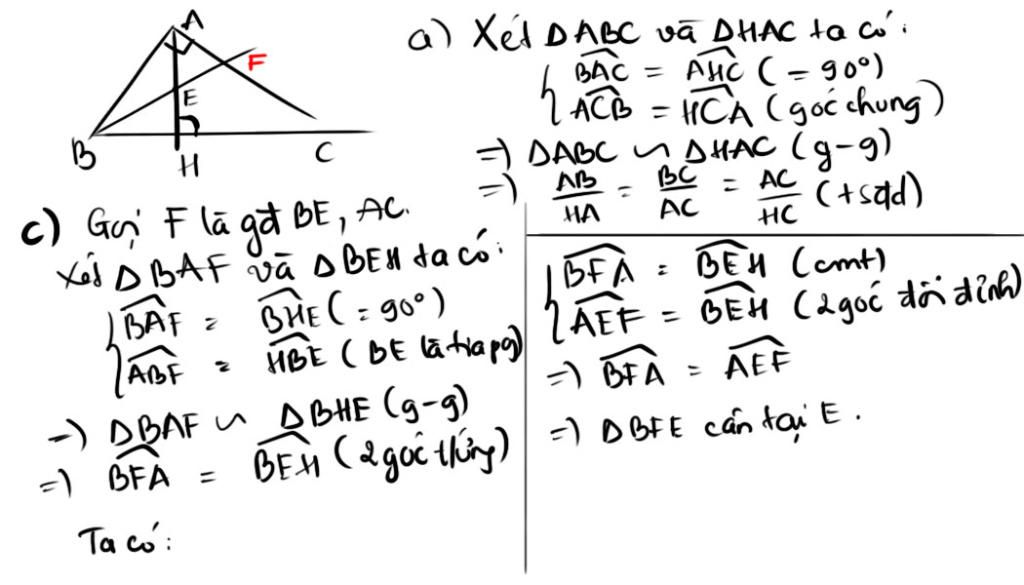 A
F
E
B
H
C
a) Xét ΔABC và ΔHAC ta có:
BAC = AHC (= 90°)
ACB = HCA (góc chung)
=) ΔABC ∽ ΔHAC (g-g)
=) AB/HA = BC/AC = AC/HC (tsđd)
c) Gọi F là gđ BE, AC.
Xét ΔBAF và ΔBEH ta có:
BAF = BHE (= 90°)
ABF = HBE (BE là tia pg)
=) ΔBAF ∽ ΔBHE (g-g)
=) BFA = BEH (2 góc t/ứng)
Ta có:
BFA = BEH (cmt)
AEF = BEH (2 góc đối đỉnh)
=) BFA = AEF
=) ΔBFE cân tại E.